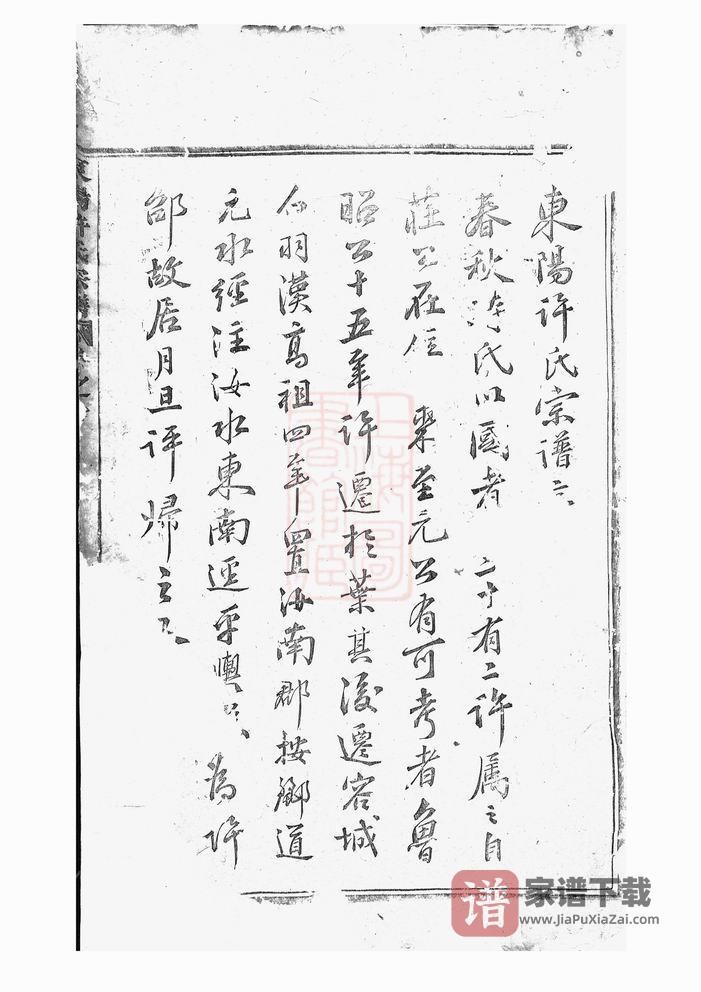 東陽許氏宗譜
春秋時氏以國者 二十有二許属之自
莊公在位  至元公有可考者魯
昭公十五年許遷於葉其後遷容城
白羽漢高祖四年置汝南郡按酈道
元水經注汝水東南逕平輿 為許
邵故居月旦評歸之
上海圖書館藏
谱
家谱下载
www.JiaPuXiaZai.com